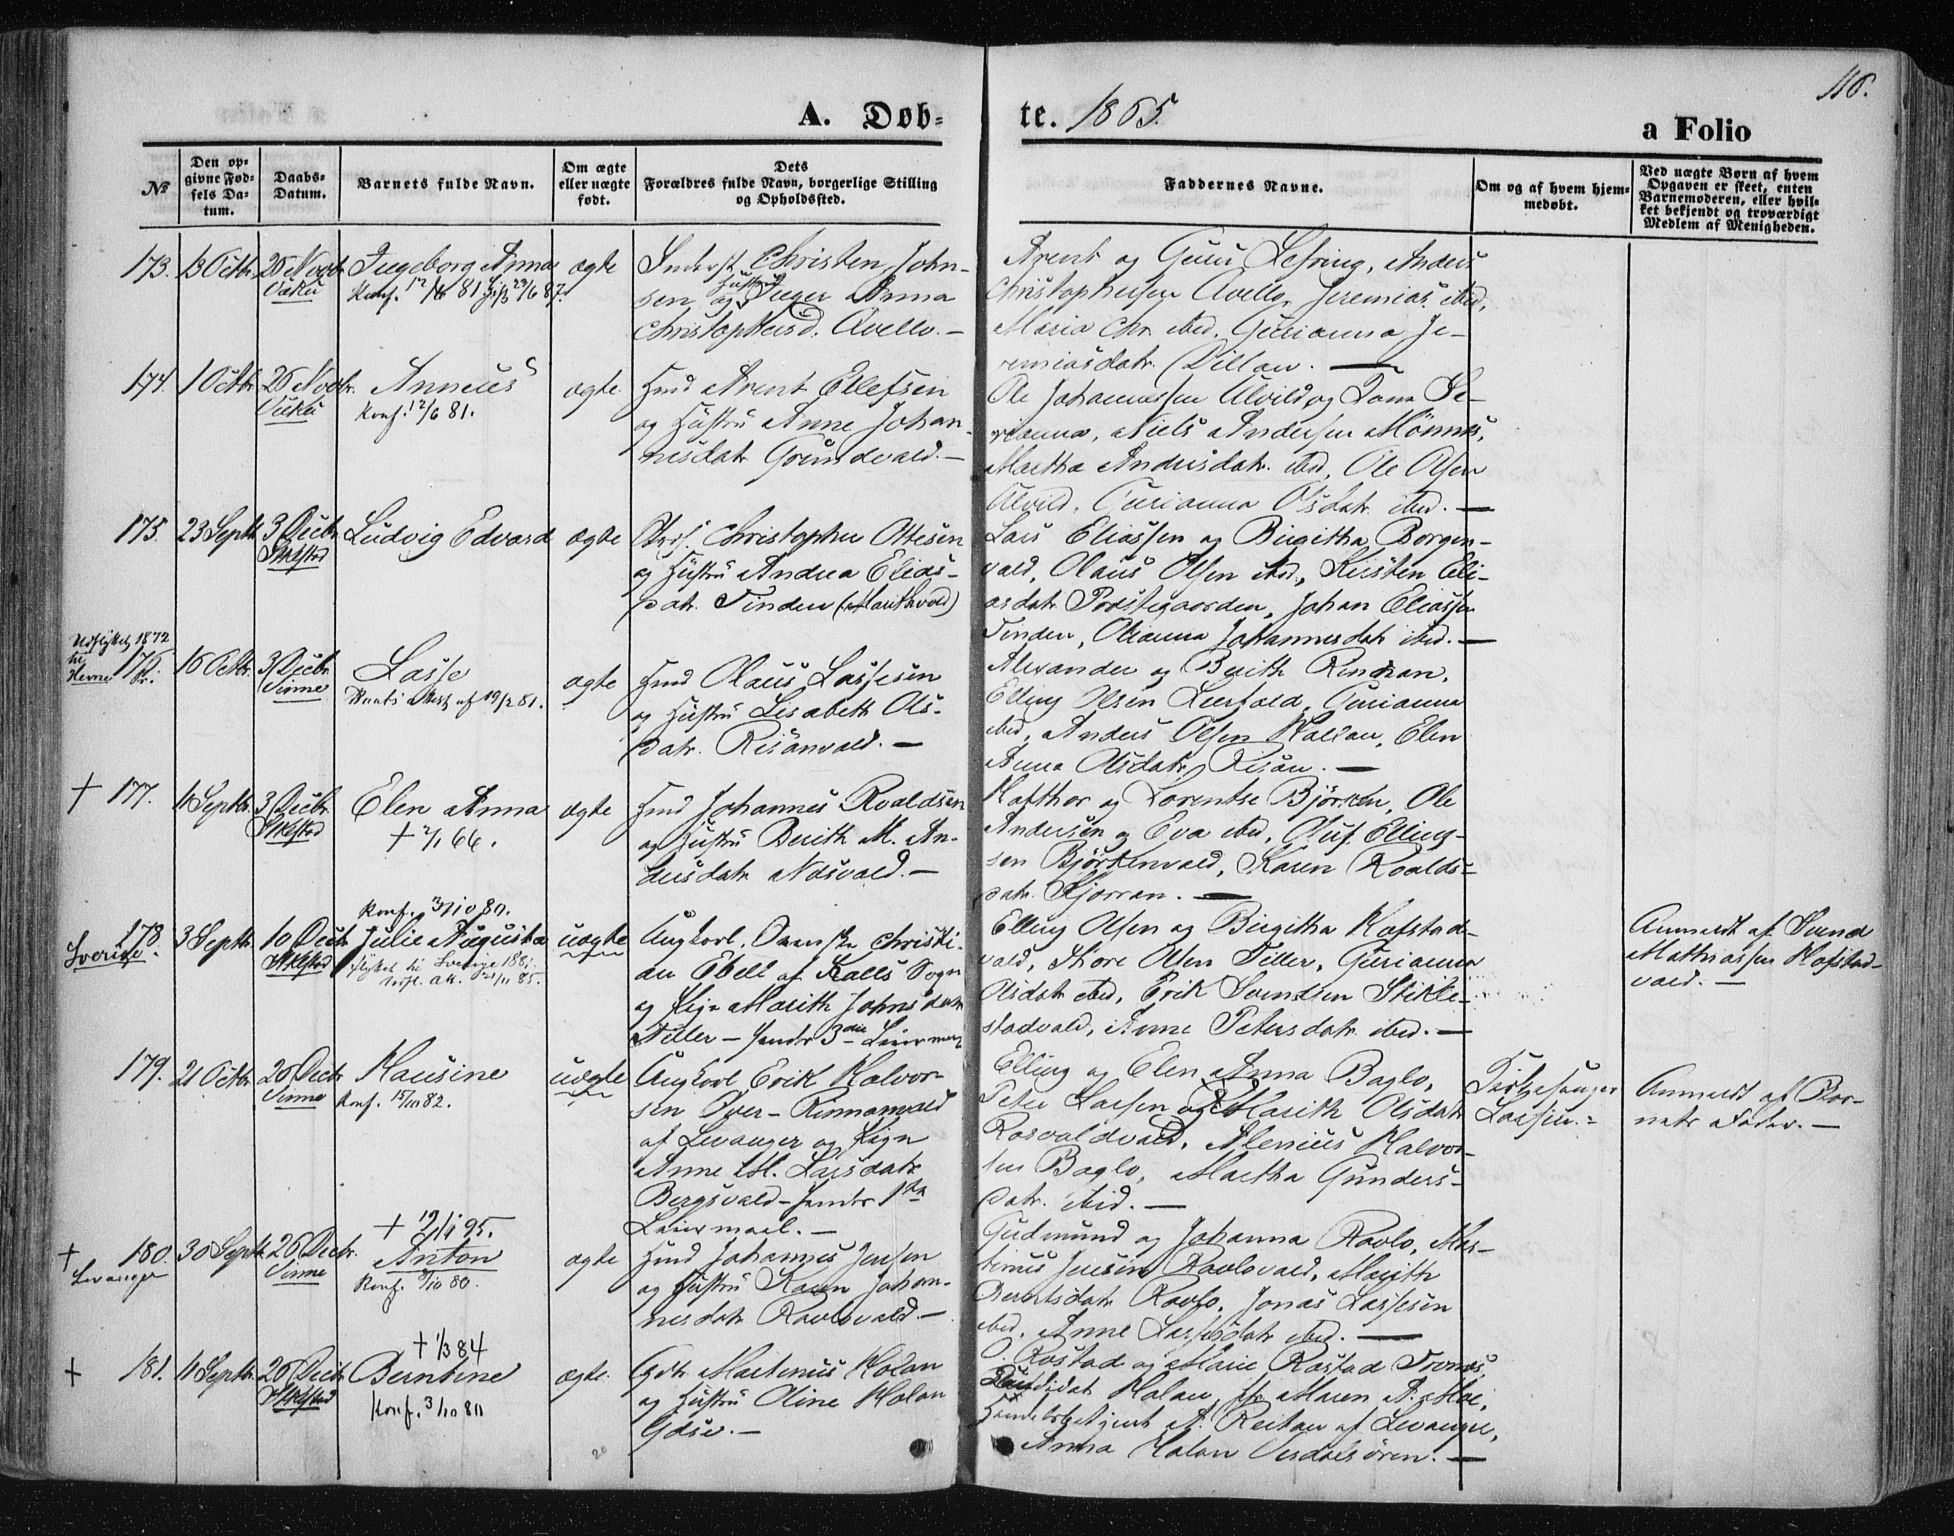 116.
A. Døb-
te. 1865.
a Folio
No
Den op-
givne Fød-
sels Da-
tum.
Daabs-
Datum.
Barnets fulde Navn.
Om ægte
eller uægte
født.
Dets
Forældres fulde Navn, borgerlige Stilling
og Opholdssted.
Faddernes Navne.
Om og af hvem hjem-
medøbt.
Ved uægte Børn af hvem
Opgaven er skeet, enten
Barnemoderen, eller hvil-
ket bekjendt og troværdigt
Medlem af Menigheden.
173. 13 Octbr. 26 Novbr. Vuku
Ingeborg Anna
Konf. 12/6 81 Gift 29/6 87.
ægte
Inderst Christen John-
sen og Hustru Inger Anna
Christophersd. Avello. —
Arent og Guru Lefring, Anders
Christophersen Avello, Jeremias ibid,
Maria Chr. ibid, Gurianna Je-
remiasdatr. Dillan. —
174. 1 Octbr. 26 Novbr. Vuku
Anneus
Konf. 12/6 81.
ægte
Hmd Arent Ellefsen
og Hustru Anne Johan-
nesdatr Grundvald. —
Ole Johannessen Ulvild og
Niels Andersen
Martha Andersdatr. ibid, Ole Olsen
Ulvild, Gurianna Olsdatr. ibid. —
175. 23 Septb. 3 Decbr. Stiklestad
Ludvig Edvard
ægte
Christopher Ottesen
og Hustru Andrea Elias-
datr. Tinden (Marithvold)
Lars Eliassen og Birgitha Borgen-
vald, Olaus Olsen ibid., Kirsten Eli-
asdatr Præstegaarden, Johan Eliassen
Tinden, Olianna Johannesdatr ibid. —
Udflyttet 1872
til
Hevne
176. 16 Octbr. 3 Decbr. Vinne
Lasse
Attest af 19/2 81.
ægte
Hmd Olaus Lassesen
og Hustru Lisabeth Ols-
datr. Risanvald. —
Alexander og Berith Rindran,
Elling Olsen Leerfald, Gurianna
ibid, Anders Olsen Hallan, Elen
Anna Olsdatr, Risan. —
+ 177. 11 Septbr. 3 Decbr. Stiklestad
Elen Anna
+ 2/1 66.
ægte
Hmd Johannes Roaldsen
og Hustru Berith M. An-
dersdatr Næsvald. —
Hafthor og Lorentse Bjørken, Ole
Andersen og Eva ibid, Oluf Elling-
sen Bjørkenvald, Karen Roalds-
datr. Kjerran. —
Sverige.
178. 3 Septbr. 10 Decbr. Stiklestad
Konf. 3/10 80.
Julie Augusta
flyttet til Sverige 188
uægte
Ungkarl, Svenske Christi-
an Ebell af Kalls Sogn
og Pige Marith Johnsdatr
Tiller — hendes 3die Leiermaal
Elling Olsen og Birgitha Hofstad-
vald, Thore Olsen Tiller, Gurianna
Olsdatr ibid, Erik Svendsen Stikle-
stadvald, Anne Petersdatr. ibid. —
Anmeldt af Svend
Mathiassen Hofstad-
vald. —
179. 21 Octbr. 26 Decbr Vinne
Hansine
Konf. 15/10 82.
uægte
Ungkarl Erik Halvor-
sen Over-Rinnanvald
af Levanger og Pige
Anne M. Larsdatr
Bergsvald — hendes 1ste
Leiermaal. —
Elling og Elen Anna Baglo,
Peter Larsen og Marith Olsdatr
Rosvaldvald, Alenius Halvor-
sen Baglo, Martha Gunders-
datr. ibid. —
Kirkesanger
Larsen. =
Anmeldt af Bar-
nets Fader. —
+ Levanger
180. 30 Septbr. 26 Decbr. Vinne
+ 19/11 95.
Anton
Konf. 3/10 80.
ægte
Hmd Johannes Jensen
og Hustru Karen Johan-
nesdatr Ravlovald. —
Gudmund og Johanna Ravlo, Mar-
tinus Jensen Ravlovald, Marith
Berntsdatr Ravlo, Jonas Lassesen
ibid, Anne Lassesdatr ibid. —
+ 181. 11 Septbr. 26 Decbr Stiklestad
+ 1/3 84
Berntine
Konf. 3/10 80
ægte.
Gdr. Martinus Holan
og Hustru Oline Holan
O. Rostad og Marie Rostad
Holan, Maren A. Moe,
Handelsbetjent A. Reitan af Levanger,
Anna Holan Verdalsøren. —
20